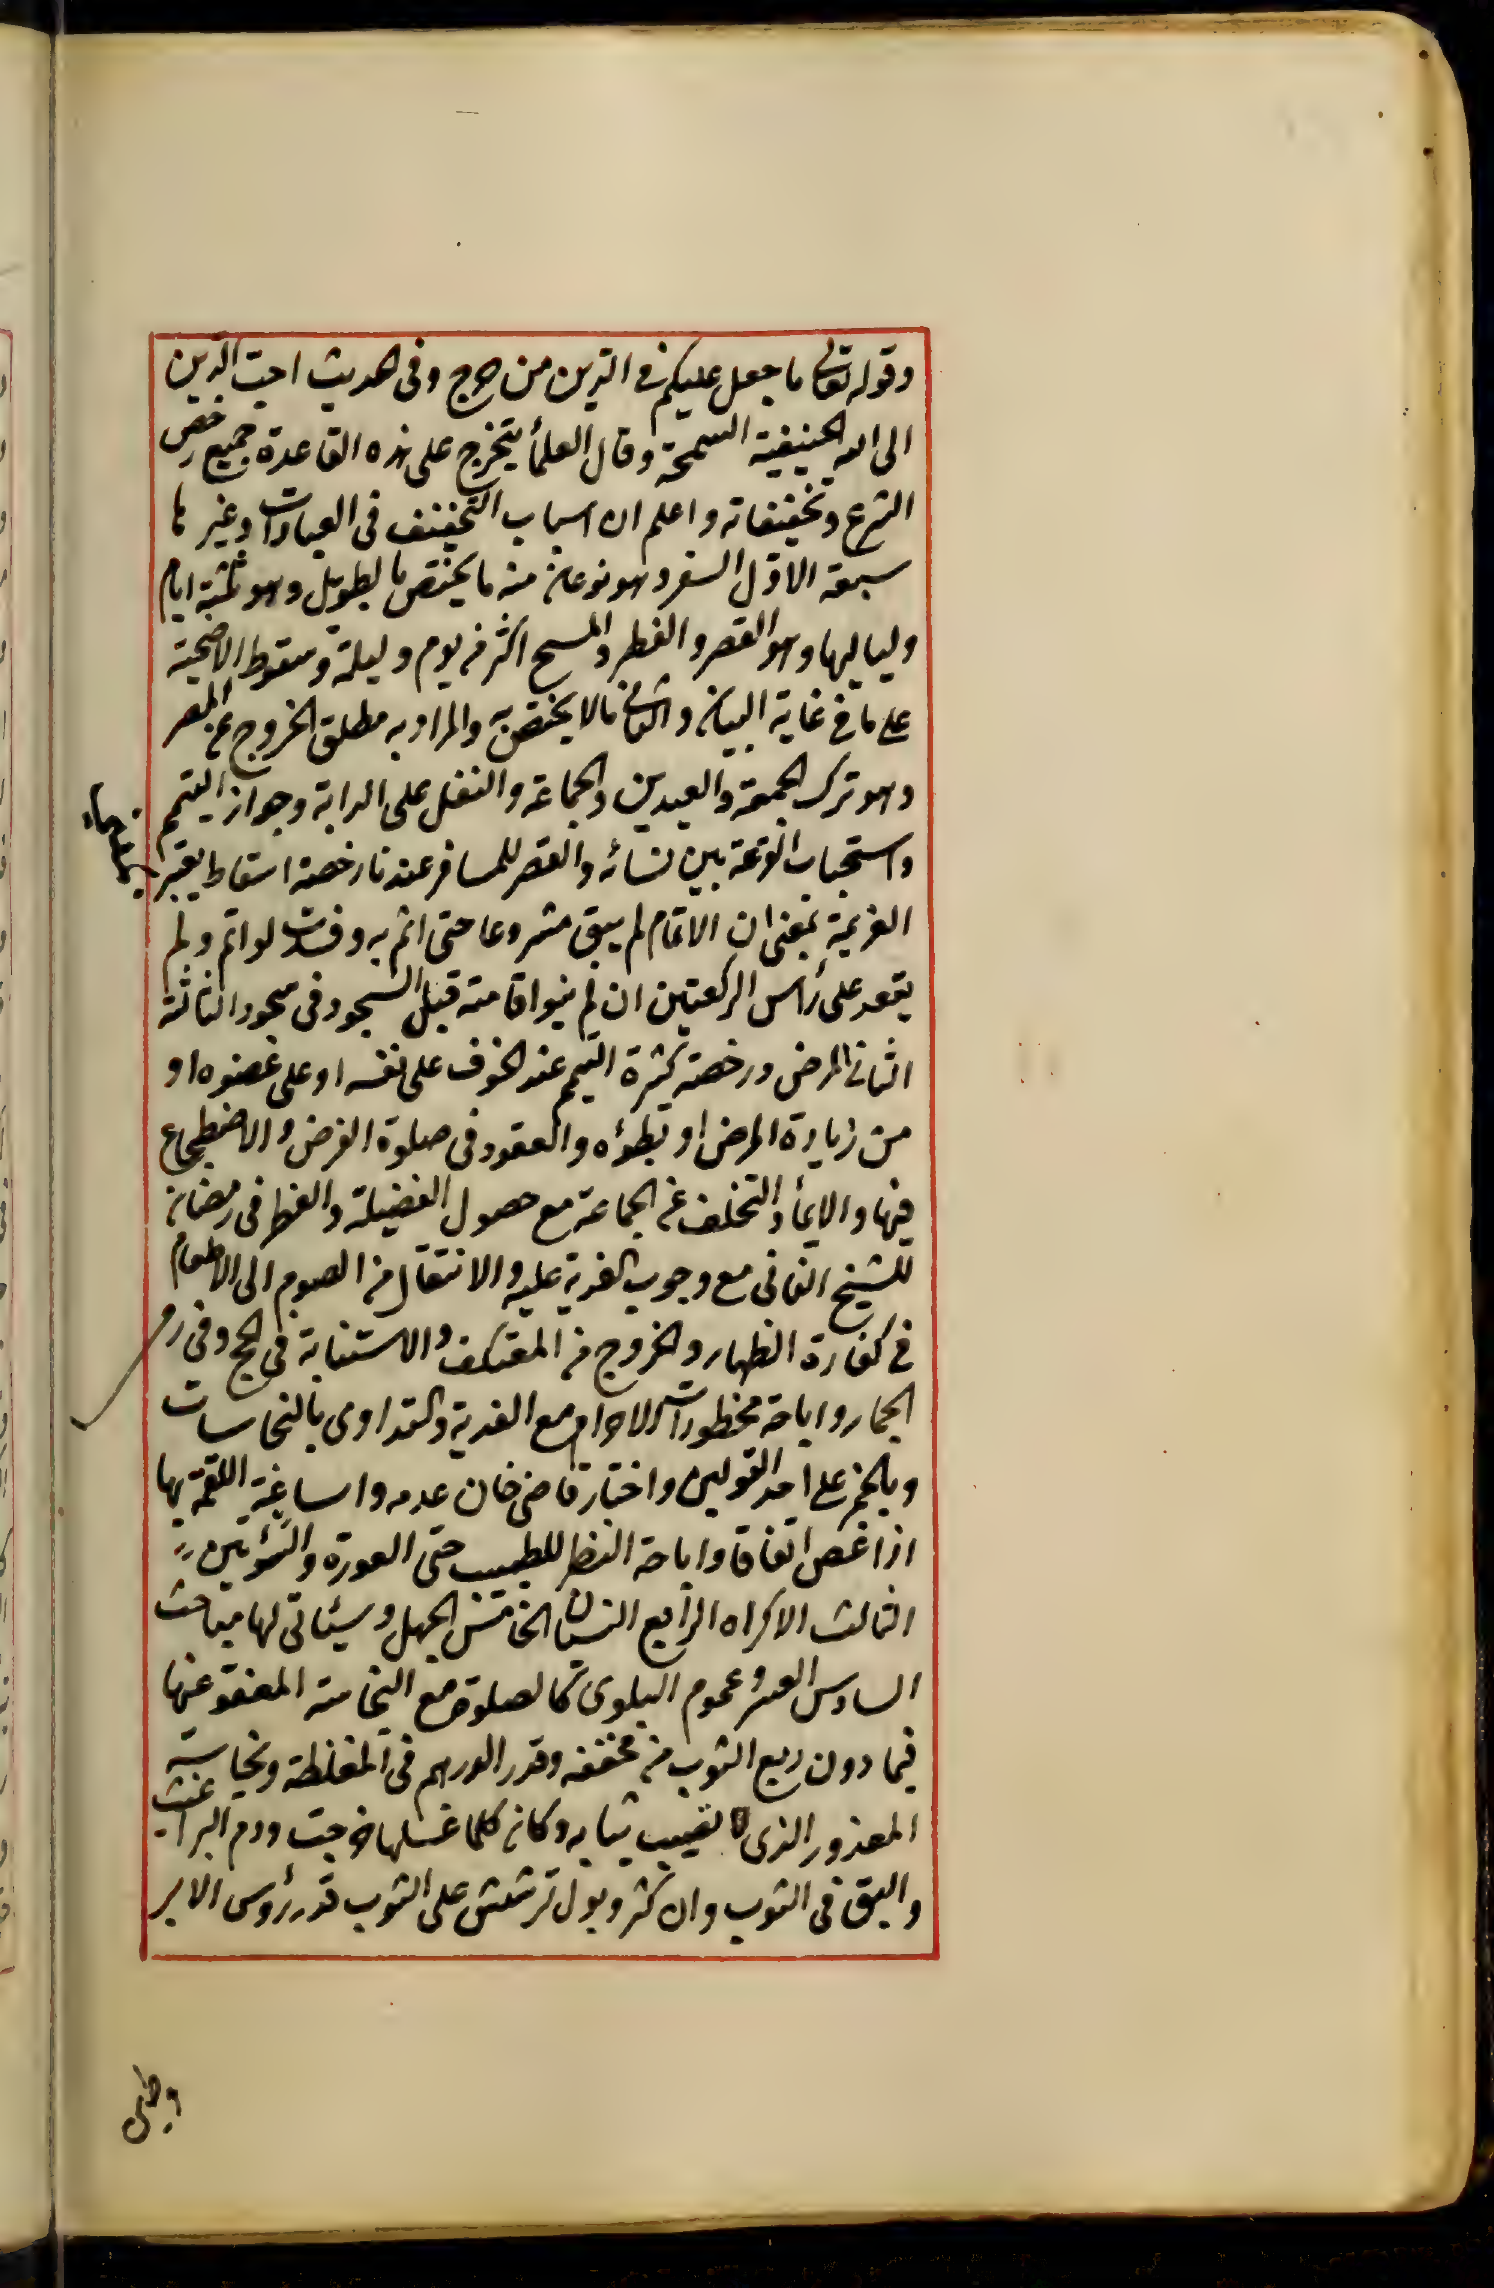 وقوله تعالى ما جعل عليكم في الدين من حرج وفى الحديث احب الدين
الى الله الحنيفية السمحة وقال العلمأ يتخرج على هذه القاعدة جميع رخص
الشرع وتخفيفاته واعلم ان اسباب التخفيف فى العبادات وغيرها
سبعة الاول السفر وهو نوعان منه ما يختص بالطويل وهو ثلثة ايام
ولياليها وهو القصر والفطر والمسح اكثر من يوم وليلة وسقوط الاضحية
على ما في غاية البيان والثانى مالا يختص به والمراد به مطلق الخروج عن المصر
وهو ترك الجمعة والعيدين والجماعة والنفل على الدابة وجواز التيمم
واستحباب القرعة بين نسائه والقصر للمسافر عندنا رخصة اسقاط يعتبر
العزيمة بمعنى ان الاتمام لم يبق مشروعا حتى اثم به وفسدت لو اتم ولم
يقعد على رأس الركعتين ان لم ينو اقامته قبل السجود فى سجود الثالثة
الثانى المرض ورخصته كثيرة التيمم عند الخوف على نفسه او على عضوه او
من زيادة المرض او بطؤه والقعود فى صلوة الفرض والاضطجاع
فيها والايمأ والتخلف عن الجماعة مع حصول الفضيلة والفطر فى رمضان
للشيخ الفانى مع وجوب الفدية عليه والانتقال من الصوم الى الاطعام
في كفارة الظهار والخروج من المعتكف والاستنابة فى الحج وفى رمى
الجمار واباحة محظورات الاحرام مع الفدية والتداوى بالنجاسات
وبالخمر على احد القولين واختار قاضى خان عدمه واساغة اللقمة بها
اذا غص اتفاقا واباحة النظر للطبيب حتى العورة والسؤتين
الثالث الاكراه الرابع النسيان الخامس الجهل وسيئاتى لها مباحث
السادس العسر وعموم البلوى كالصلوة مع النجاسة المعفو عنها
فيما دون ربع الثوب من مخففه وقدر الدرهم فى المغلظة ونجاسة
المعذور الذى تصيب ثيابه وكان كلما غسلها خرجت ودم البراغيث
والبق فى الثوب وان كثر وبول ترشش على الثوب قدر رؤس الابر
وطين